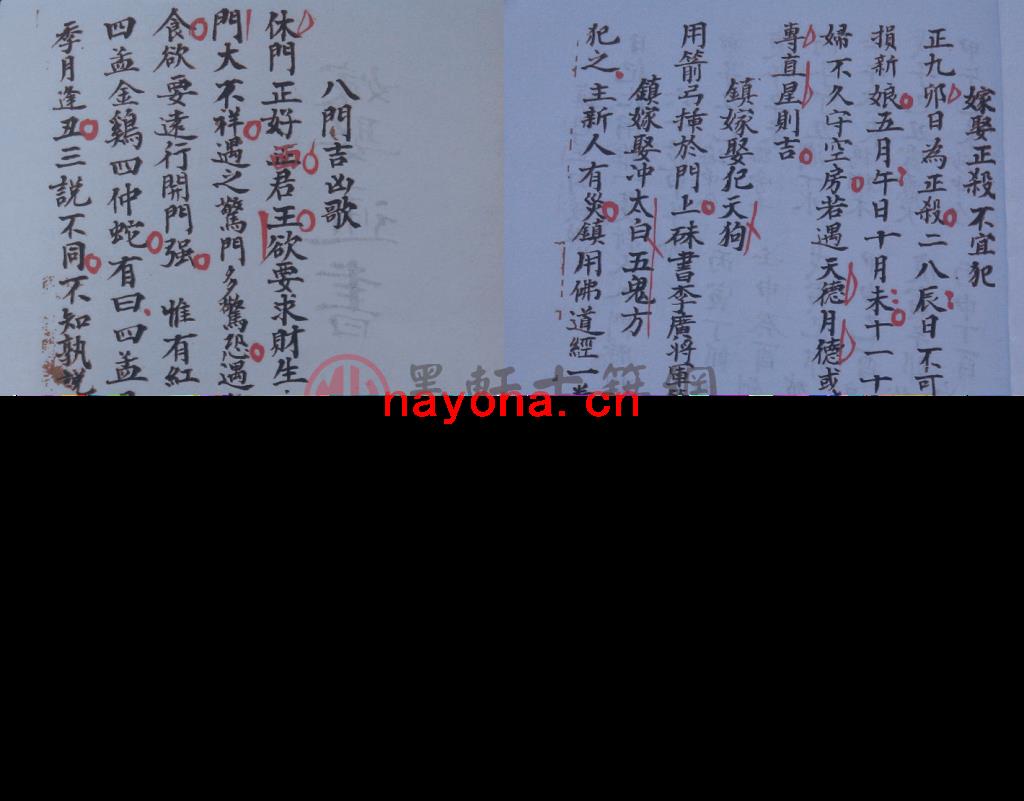 嫁娶正殺不宜犯
正九卯日為正殺二八辰日不可
損新娘五月午日十月未十一十
婦不久守空房若遇天德月德或
專直星則吉
鎮嫁娶犯天狗
用箭弓掛於門上硃書李廣將軍
鎮嫁娶冲太白五鬼方
犯之主新人有災鎮用佛道經一
八門吉凶歌
休門正好 君王欲要求財生
門大不祥遇之驚門多驚恐遇
食欲要遠行開門强 惟有紅
四孟金鷄四仲蛇有曰四孟
季月逢丑三說不同不知孰說
墨軒古籍網
nayona.cn